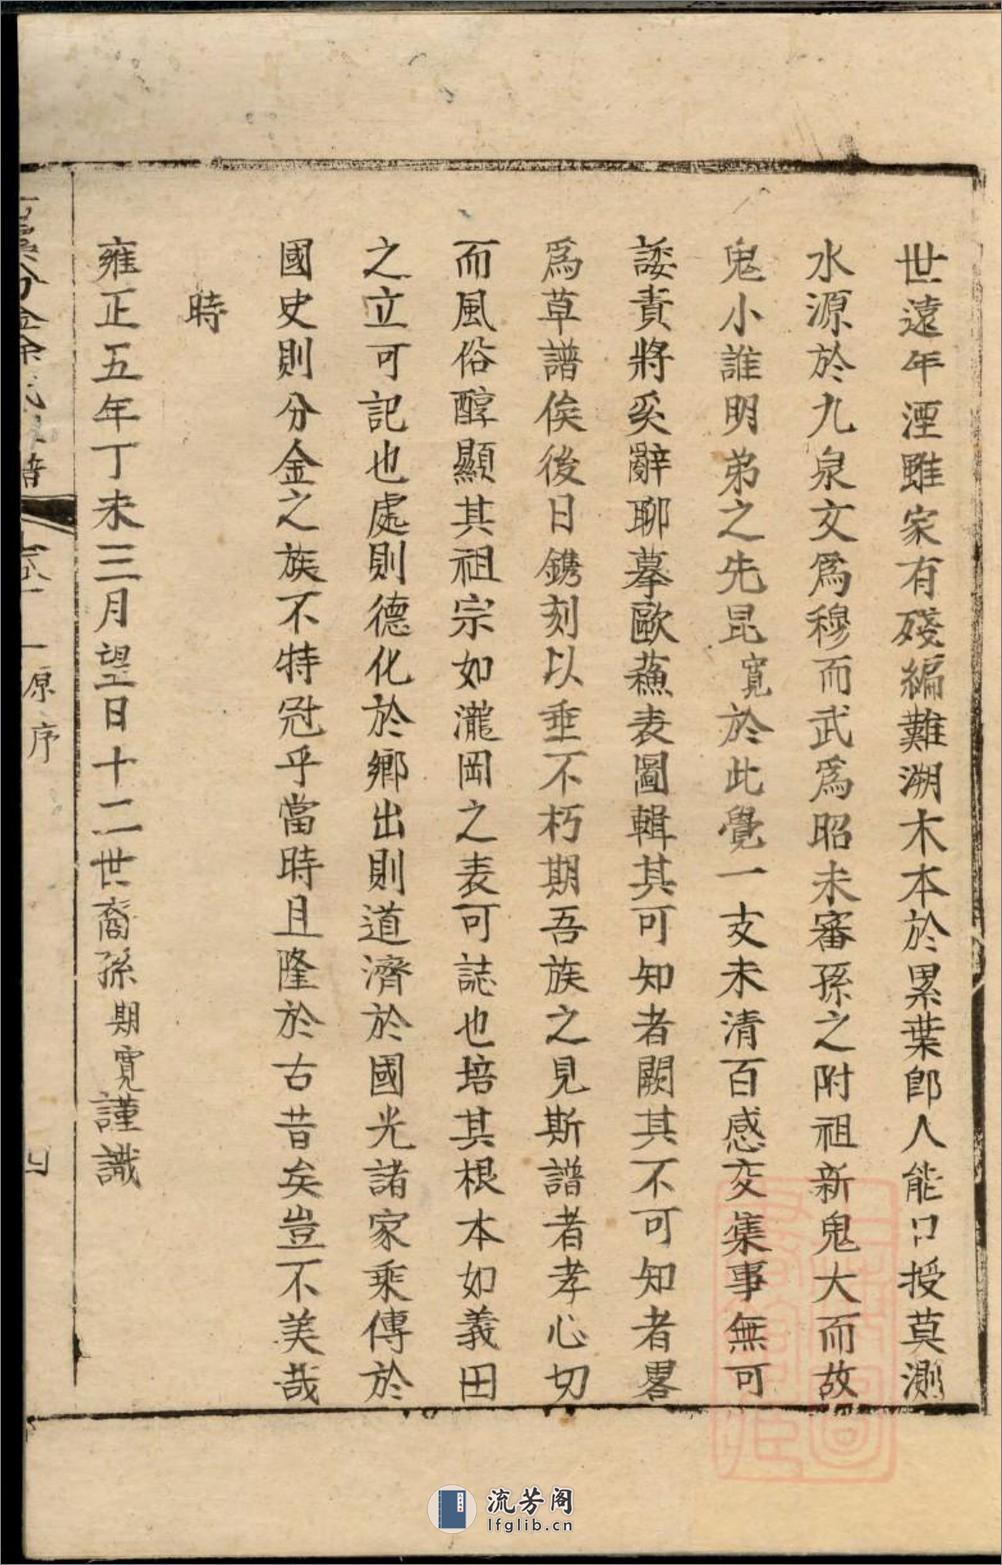 世遠年湮雖家有殘編難溯木本於累葉卽人能口授莫測
水源於九泉文爲穆而武爲昭未審孫之附祖新鬼大而故
鬼小誰明弟之先昆寬於此覺一支未清百感交集事無可
諉責將奚辭聊摹歐蘇表圖輯其可知者闕其不可知者畧
爲草譜俟後日鐫刻以垂不朽期吾族之見斯譜者孝心切
而風俗醇顯其祖宗如瀧岡之表可誌也培其根本如義田
之立可記也處則德化於鄉出則道濟於國光諸家乘傳於
國史則分金之族不特冠乎當時且隆於古昔矣豈不美哉
時
雍正五年丁未三月望日十二世裔孫期寬謹識
分金徐氏 譜
原序
四
流芳阁
lfglib.cn